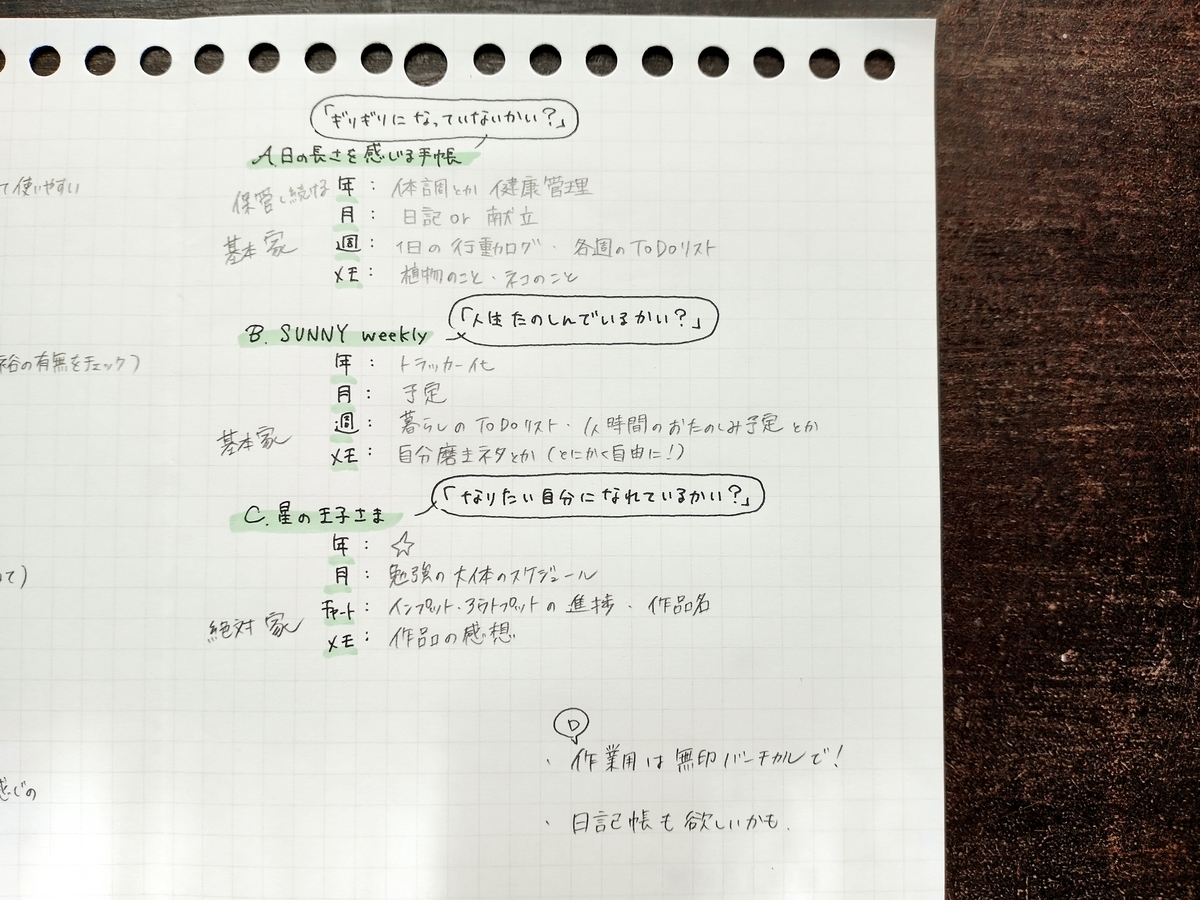 「ギリギリになっていないかい？」
A. 日の長さを感じる手帳
て使いやすい
保管し続ける 年： 体調とか 健康管理
月： 日記 or 献立
基本 家 週： 1日の行動ログ・各週のToDoリスト
メモ： 植物のこと・ネコのこと
「人生たのしんでいるかい？」
B. SUNNY weekly
裕の有無をチェック)
年： トラッカー代
月： 予定
週： 暮らしのToDoリスト・1人時間のおたのしみ予定とか
基本 家
メモ： 自分磨きネタとか (とにかく自由に！)
「なりたい自分になれているかい？」
C. 星の王子さま
年： ☆
て)
月： 勉強の大体のスケジュール
チャート： インプット・アウトプットの進捗・作品名
絶対 家
メモ： 作品の感想
D
・作業用は無印バーチカルで！
感じの
・日記帳も欲しいかも.